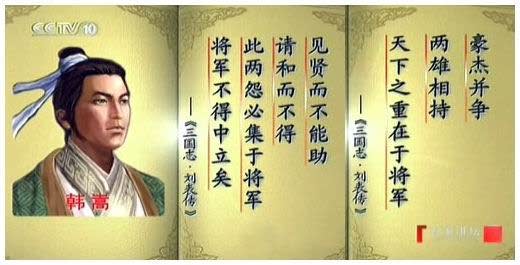 CCTV 10
豪杰并争
两雄相持
天下之重在于将军
——《三国志·刘表传》
见贤而不能助
请和而不得
此两怨必集于将军
将军不得中立矣
——《三国志·刘表传》
韩嵩